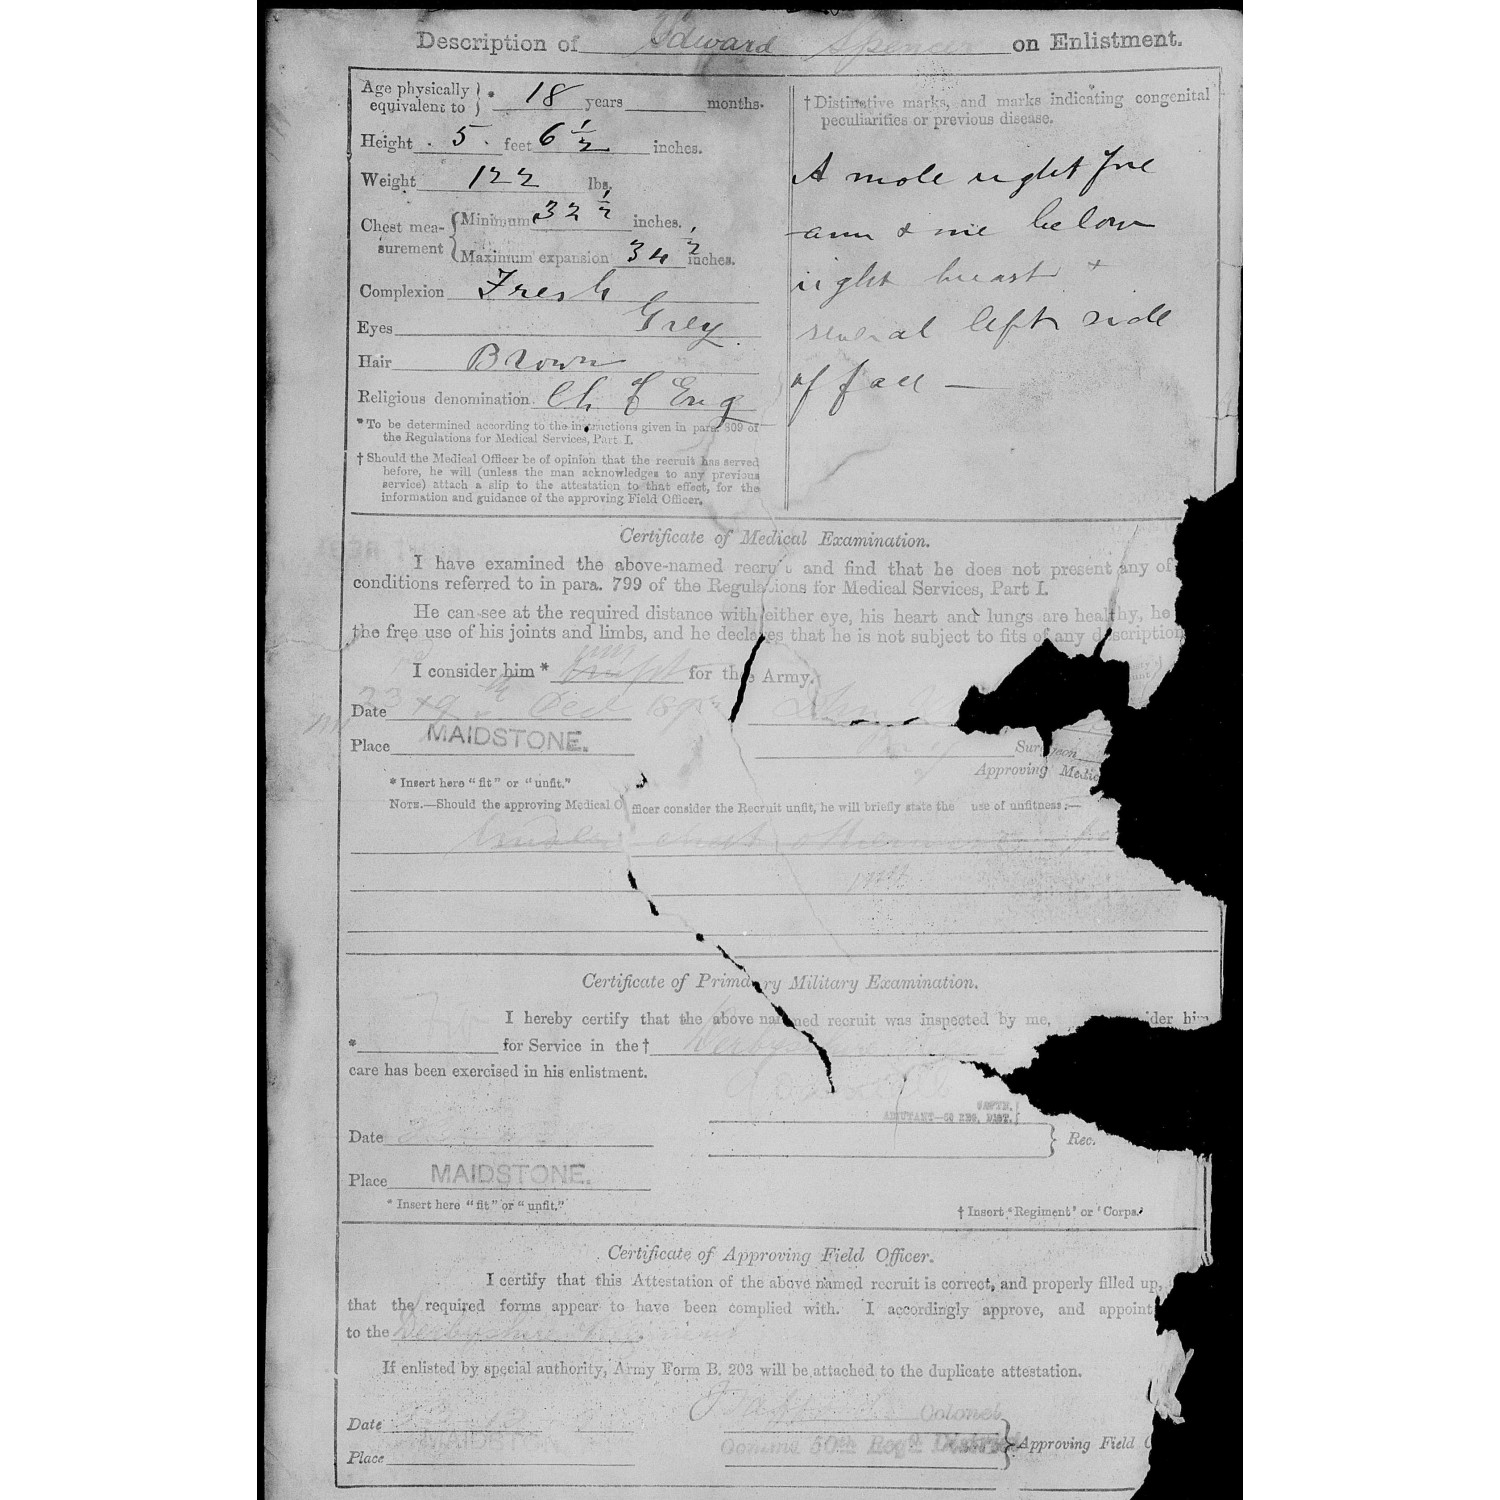 Description of Edward Spencer on Enlistment.
Age physically equivalent to * 18 years months.
Height 5 feet 6 1/2 inches.
Weight 122 lbs.
Chest measurement Minimum 32 1/2 inches.
Maximum expansion 34 1/2 inches.
Complexion Fresh
Eyes Grey
Hair Brown
Religious denomination Ch of Eng
* To be determined according to the instructions given in para. 809 of
the Regulations for Medical Services, Part I.
† Should the Medical Officer be of opinion that the recruit has served
before, he will (unless the man acknowledges to any previous
service) attach a slip to the attestation to that effect, for the
information and guidance of the approving Field Officer.
† Distinctive marks, and marks indicating congenital
peculiarities or previous disease.
A mole right fore
arm & one below
right breast +
several left side
of face —
Certificate of Medical Examination.
I have examined the above-named recruit and find that he does not present any of
conditions referred to in para. 799 of the Regulations for Medical Services, Part I.
He can see at the required distance with either eye, his heart and lungs are healthy, he
the free use of his joints and limbs, and he declares that he is not subject to fits of any description
I consider him * for the Army.
Date
Place MAIDSTONE.
Approving Medic
* Insert here "fit" or "unfit."
NOTE.—Should the approving Medical Officer consider the Recruit unfit, he will briefly state the use of unfitness:—
Certificate of Primary Military Examination.
I hereby certify that the above named recruit was inspected by me, ider him
* for Service in the † Derbyshire
care has been exercised in his enlistment.
CAPTN.
ADJUTANT—50 REG. DIST.
Date
Rec.
Place MAIDSTONE.
* Insert here "fit" or "unfit."
† Insert 'Regiment' or 'Corps.'
Certificate of Approving Field Officer.
I certify that this Attestation of the above named recruit is correct, and properly filled up,
that the required forms appear to have been complied with. I accordingly approve, and appoint
to the Derbyshire Regiment
If enlisted by special authority, Army Form B. 203 will be attached to the duplicate attestation.
Colonel
Date
MAIDSTONE
Comdng 50th Regtl District
Approving Field O
Place